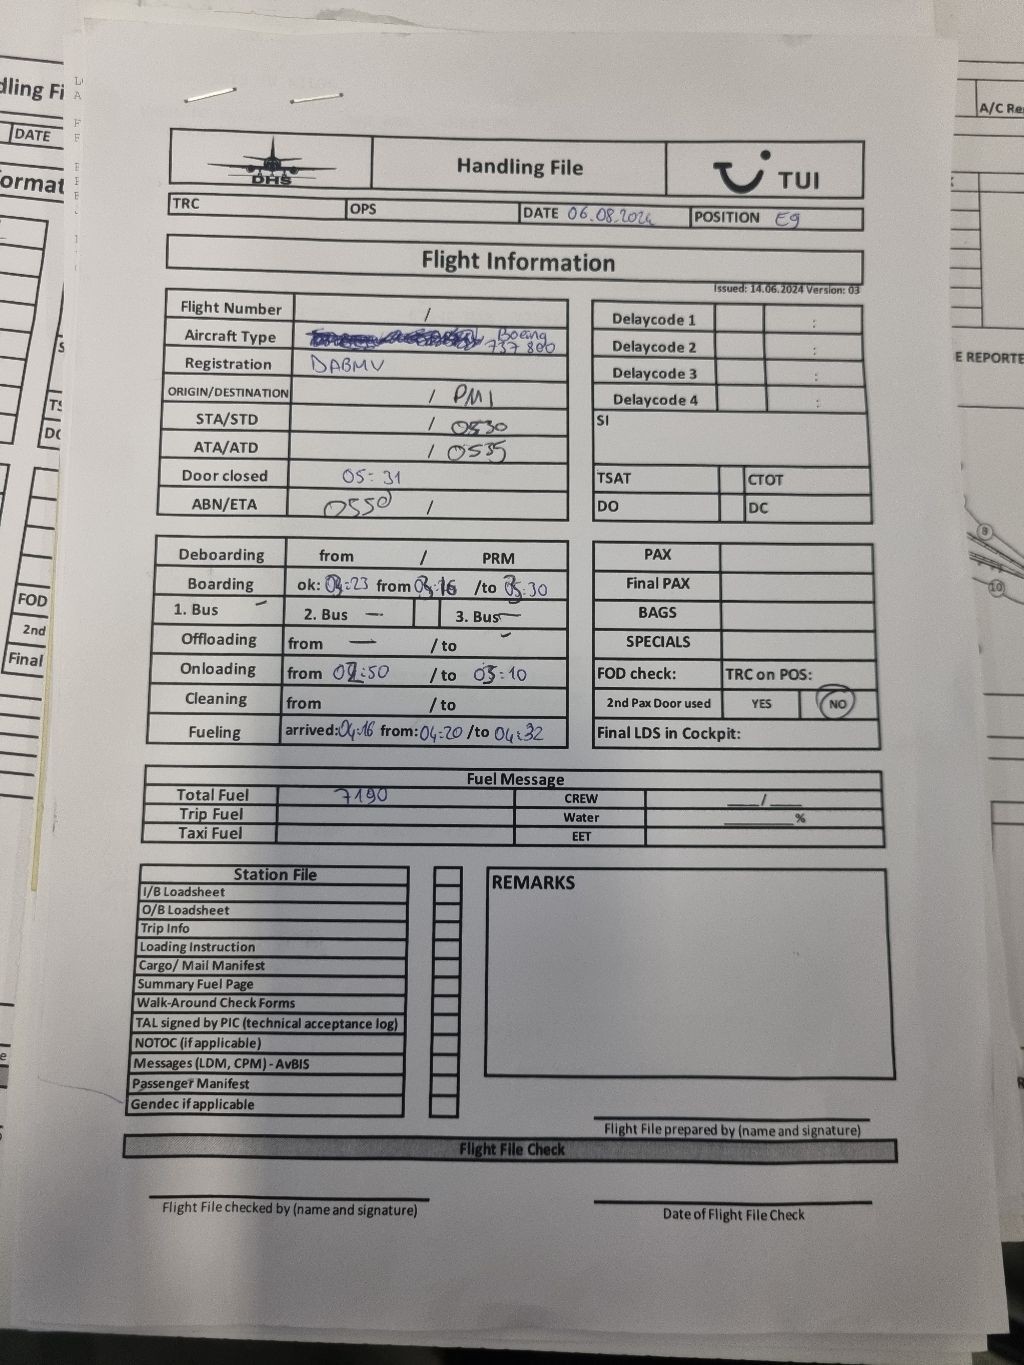 dling Fi
DATE
ormat
DHS
Handling File
TUI
TRC OPS DATE 06.08.2024 POSITION E9
Flight Information
Issued: 14.06.2024 Version: 03
Flight Number /
Aircraft Type Boeing 737 800
Registration DABMV
ORIGIN/DESTINATION / PMI
STA/STD / 0530
ATA/ATD / 0535
Door closed 05:31
ABN/ETA 0550 /
Delaycode 1 :
Delaycode 2 :
Delaycode 3 :
Delaycode 4 :
SI
TSAT CTOT
DO DC
Deboarding from / PRM
Boarding ok: :23 from :16 /to 05:30
1. Bus – 2. Bus — 3. Bus –
Offloading from — / to –
Onloading from :50 / to 05:10
Cleaning from / to
Fueling arrived: 04:16 from: 04:20 /to 04:32
PAX
Final PAX
BAGS
SPECIALS
FOD check: TRC on POS:
2nd Pax Door used YES NO
Final LDS in Cockpit:
Fuel Message
Total Fuel 7190 CREW ___/___
Trip Fuel Water ______%
Taxi Fuel EET
Station File
I/B Loadsheet
O/B Loadsheet
Trip Info
Loading Instruction
Cargo/ Mail Manifest
Summary Fuel Page
Walk-Around Check Forms
TAL signed by PIC (technical acceptance log)
NOTOC (if applicable)
Messages (LDM, CPM) - AvBIS
Passenger Manifest
Gendec if applicable
REMARKS
Flight File prepared by (name and signature)
Flight File Check
Flight File checked by (name and signature)
Date of Flight File Check
A/C Re
E REPORTE
8
10
FOD
2nd
Final